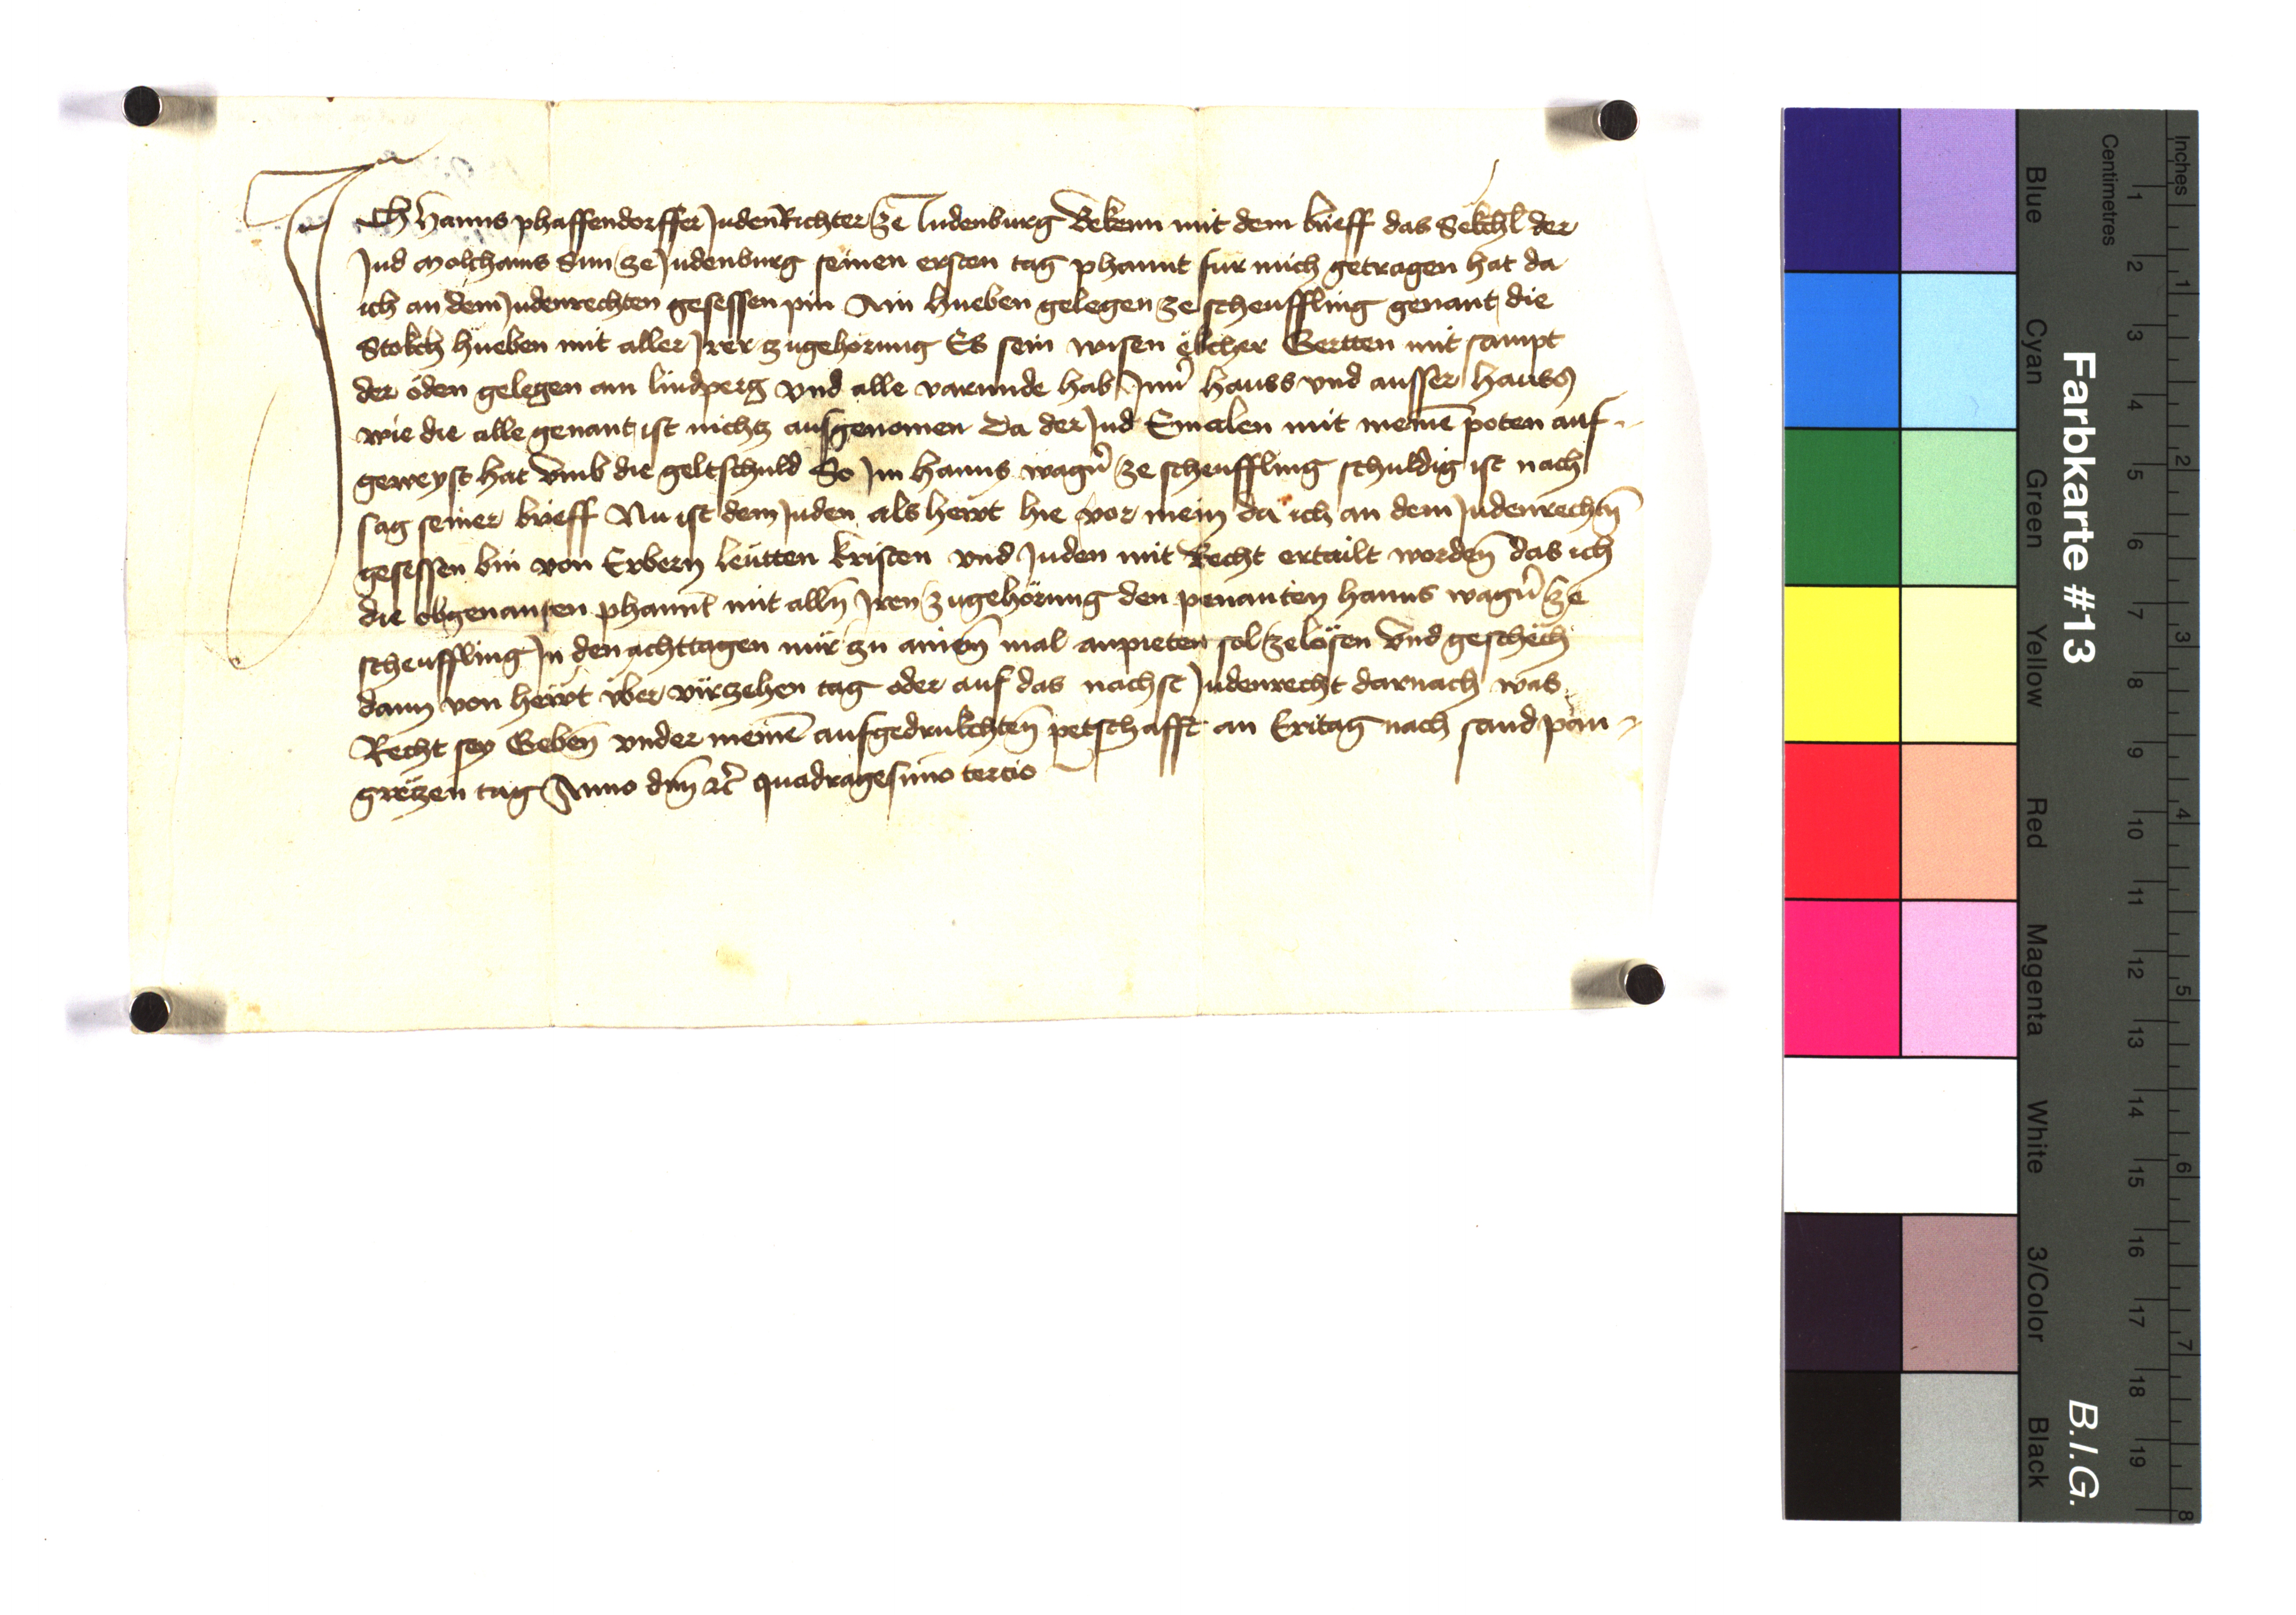 Ich Hanns phaffendorffer JudenRichter ze Judenburg Bekenn mit dem brieff das Sekchl der
Jud Molchams Sun ze Judenburg seinen ersten tag phannt fur mich getragen hat da
ich an dem Judenrechten gesessen pin Ain hueben gelegen ze scheuffling genant die
Stokch hüeben mit aller Jrer zugehorung Es sein wisen ëkcher Gertten mit sampt
der öden gelegen am lindperg vnd alle varunde hab Jnn̄ hauss vnd ausser hauss
wie die alle genant ist nichtz ausgenomen Da der Jud Emalen mit meinē poten auf
geweyst hat vmb die geltschuld So Jm hanns wagn̄ ze scheuffling schuldig ist nach
sag seiner brieff Nu ist dem Juden als hewt hie vor mein da ich an dem Judenrechtn̄
gesessen bin von Erbern leütten kristen vnd Juden mit Recht ertailt wordn̄ das ich
die obgenanten phannt mit alln̄ Jren zugehörung den penanten hanns wagn̄ ze
scheuffling Jn den achttagen nür zu ainem̄ mal anpieten sol ze lösen vnd geschëch
dann von hewt vber virzehen tag oder auf das nachst Judenrecht darnach was
Recht sey Geben̄ vnder meinē aufgedrukchten̄ petschafft an Eritag nach sand pan
grëtzen tag Anno dm̄ ꝛc̄ quadragesimo tercio
Farbkarte #13
B.I.G.
Centimetres
Inches
Blue
Cyan
Green
Yellow
Red
Magenta
White
3/Color
Black
1 2 3 4 5 6 7 8 9 10 11 12 13 14 15 16 17 18 19
1 2 3 4 5 6 7 8